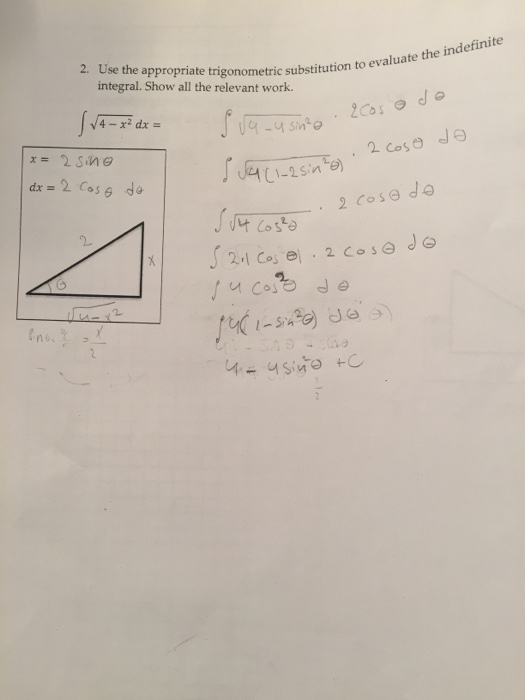 2. Use the appropriate trigonometric substitution to evaluate the indefinite
integral. Show all the relevant work.
∫ √4 − x² dx =
x = 2 sinθ
dx = 2 cosθ dθ
2
x
θ
√4−x²
= x/2
∫ √4−4sin²θ · 2cosθ dθ
∫ √4(1−2sin²θ) · 2cosθ dθ
∫ √4cos²θ · 2cosθ dθ
∫ 2·|cosθ| · 2cosθ dθ
∫ 4cos²θ dθ
∫ 4(1−sin²θ) dθ
4 − 4sin²θ + C
1/2